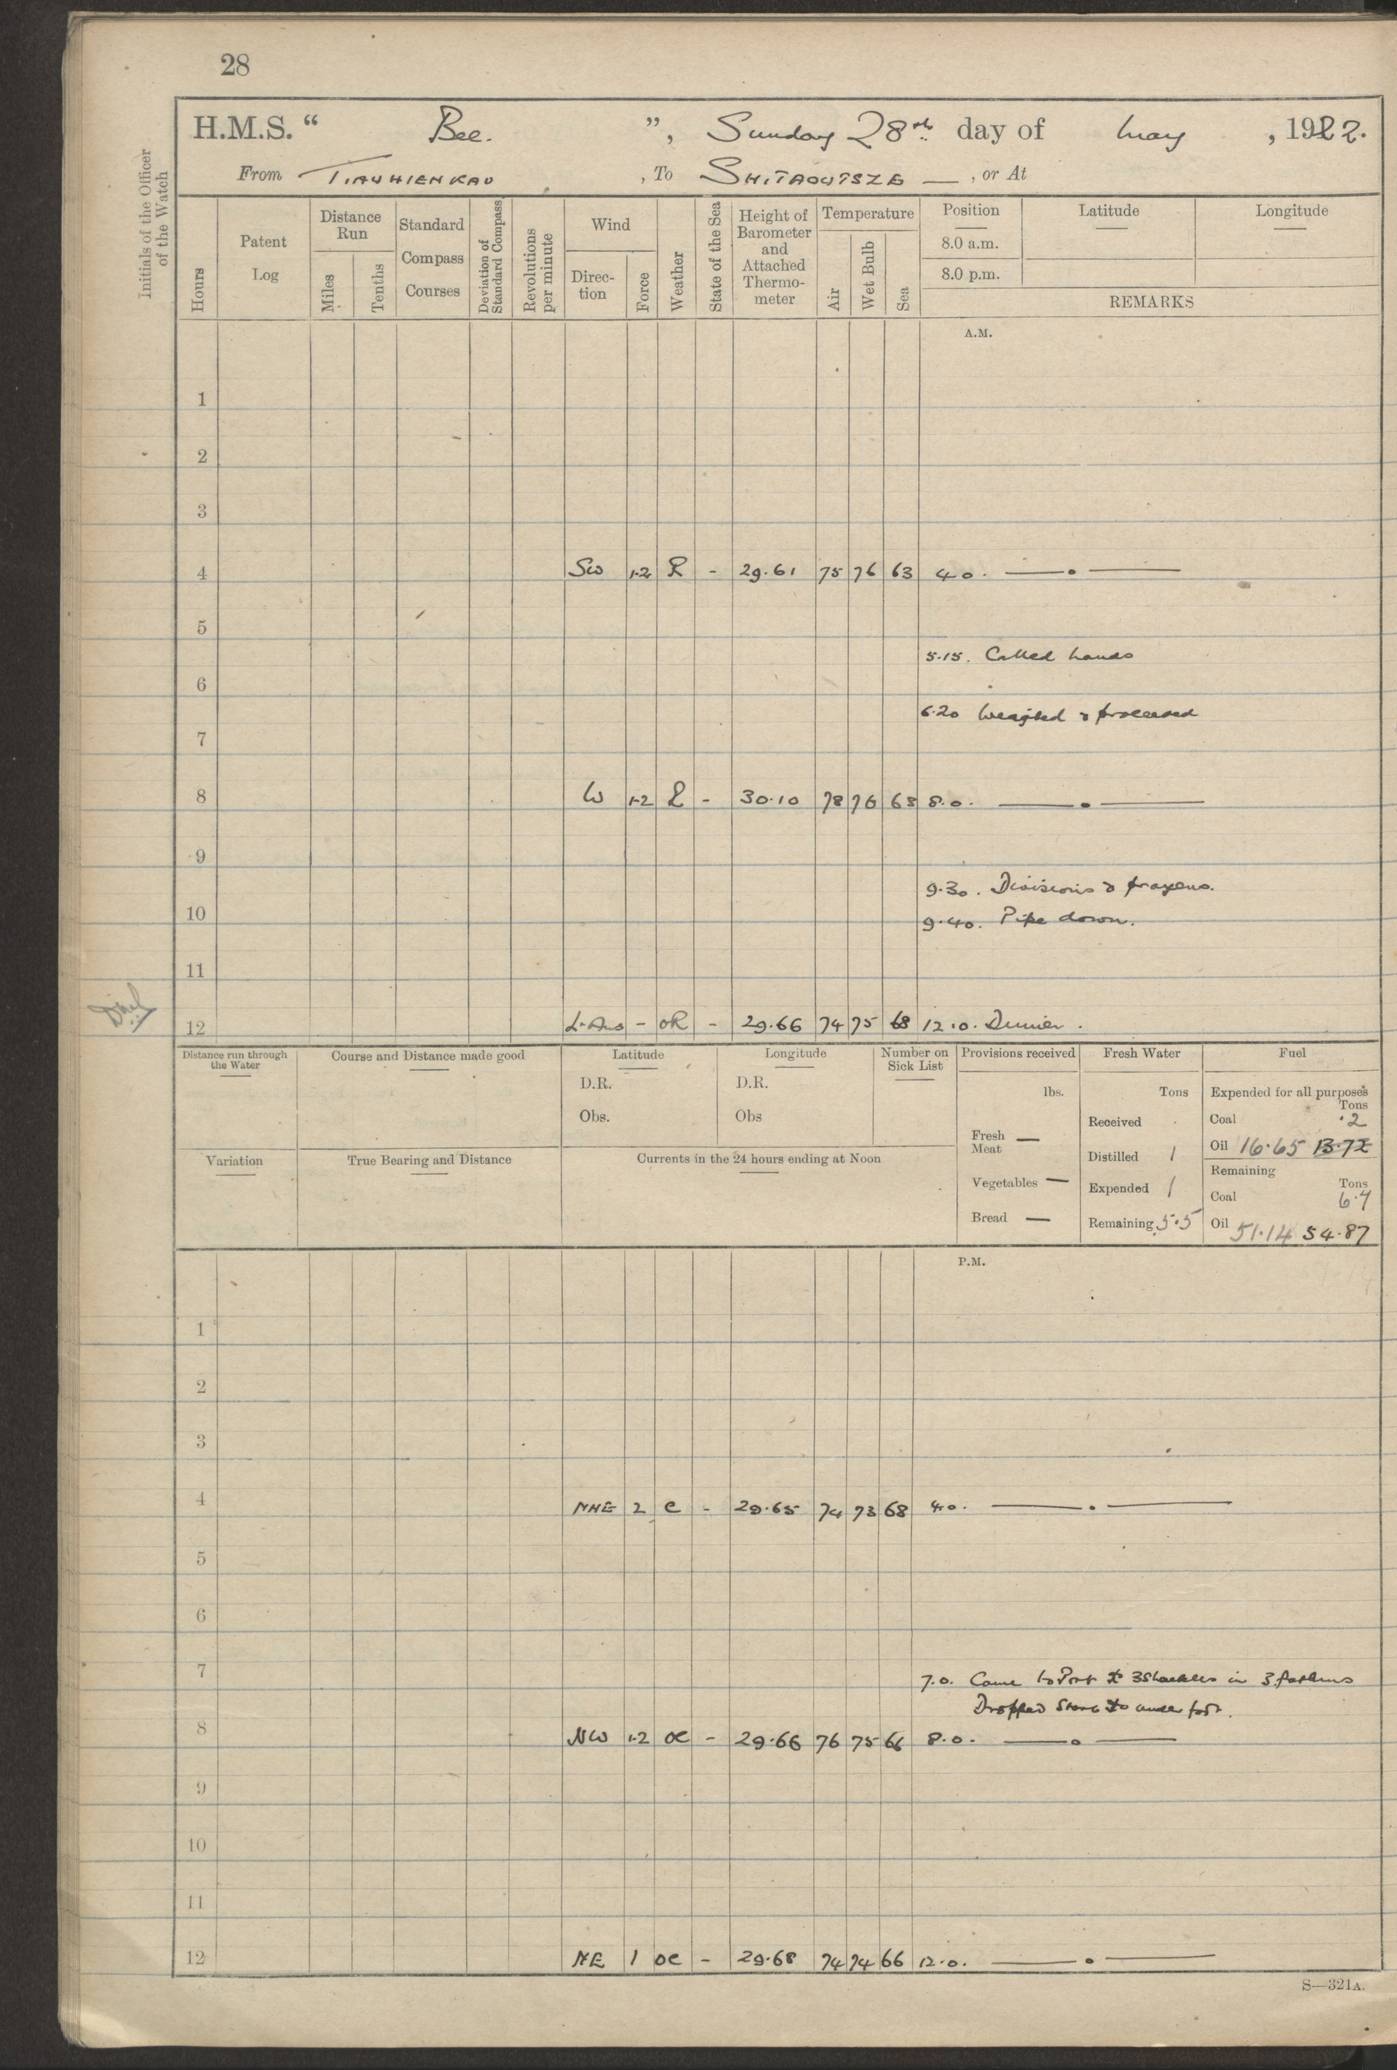 28
H.M.S. “ Bee. ”, Sunday 28th day of May , 1922.
From TIAUHIENKAU , To SHITAOUTSZE — , or At
Initials of the Officer of the Watch
Hours
Patent Log
Distance Run
Miles
Tenths
Standard Compass Courses
Deviation of Standard Compass
Revolutions per minute
Wind
Direction
Force
Weather
State of the Sea
Height of Barometer and Attached Thermometer
Temperature
Air
Wet Bulb
Sea
Position
Latitude
Longitude
8.0 a.m.
8.0 p.m.
REMARKS
A.M.
1
2
3
4 SW 1·2 R - 29·61 75 76 63 4·0. —— . ——
5
5·15. Called hands
6
6·20 Weighed & proceeded
7
8 W 1·2 R - 30·10 78 76 68 8·0. —— . ——
9
9·30. Divisions & prayers.
10
9·40. Pipe down.
11
12 - oR - 29·66 74 75 68 12·0. Dinner.
Distance run through the Water
Course and Distance made good
Latitude
D.R.
Obs.
Longitude
D.R.
Obs
Number on Sick List
Provisions received
lbs.
Fresh Meat —
Vegetables —
Bread —
Fresh Water
Tons
Received
Distilled 1
Expended 1
Remaining 5·5
Fuel
Expended for all purposes
Tons
Coal ·2
Oil 16·65 13·72
Remaining
Tons
Coal 6·4
Oil 51·14 54·87
Variation
True Bearing and Distance
Currents in the 24 hours ending at Noon
P.M.
1
2
3
4 NNE 2 c - 29·65 74 73 68 4·0. —— . ——
5
6
7
7·0. Came to Port 3 Shackles in 3 fathoms
Dropped under foot.
8 NW 1·2 oc - 29·66 76 75 66 8·0. —— . ——
9
10
11
12 NE 1 oc - 29·68 74 74 66 12·0. —— . ——
S—321A.